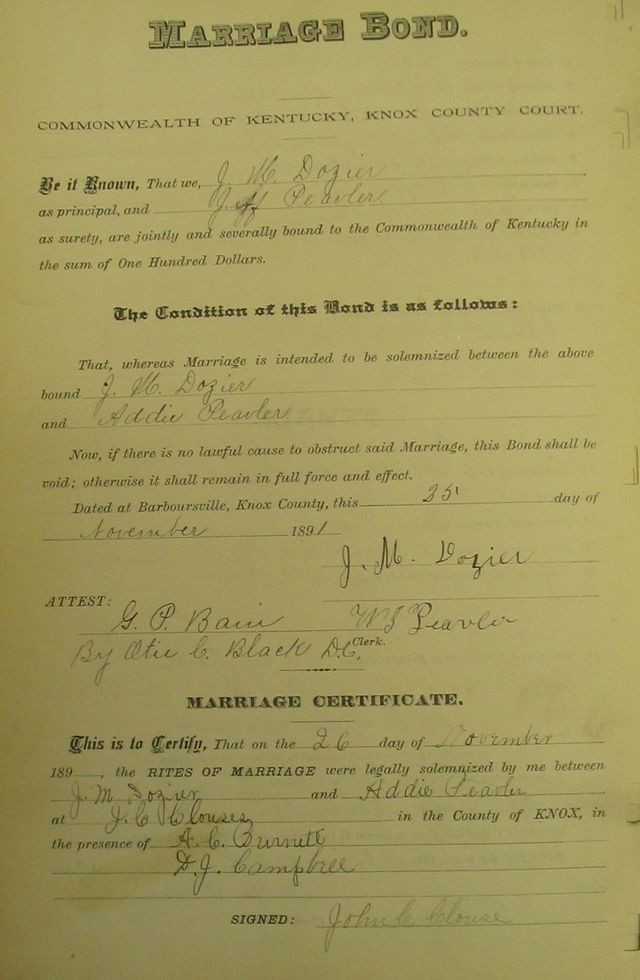 MARRIAGE BOND.
COMMONWEALTH OF KENTUCKY, KNOX COUNTY COURT.
Be it Known, That we, J. M. Dozier
as principal, and Peavler
as surety, are jointly and severally bound to the Commonwealth of Kentucky in
the sum of One Hundred Dollars.
The Condition of this Bond is as follows:
That, whereas Marriage is intended to be solemnized between the above
bound J. M. Dozier
and Addie Peavler
Now, if there is no lawful cause to obstruct said Marriage, this Bond shall be
void; otherwise it shall remain in full force and effect.
Dated at Barboursville, Knox County, this 25 day of
November 1891
J. M. Dozier
ATTEST:
G. P. Bain W S Peavler
By Otis C. Black D.C. Clerk.
MARRIAGE CERTIFICATE.
This is to Certify, That on the 26 day of November
189 , the RITES OF MARRIAGE were legally solemnized by me between
J. M Dozier and Addie Peavler
at J. C Clouses in the County of KNOX, in
the presence of A. C. Burnett
D. J. Campbell
SIGNED: John C Clouse